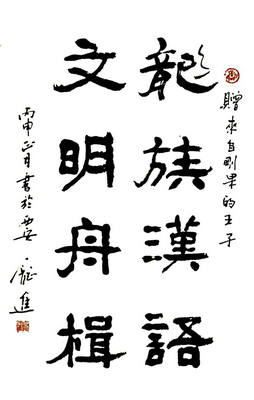 贈來自剛果的王子
龍族漢語
文明舟楫
丙申正月書於西安·龐進